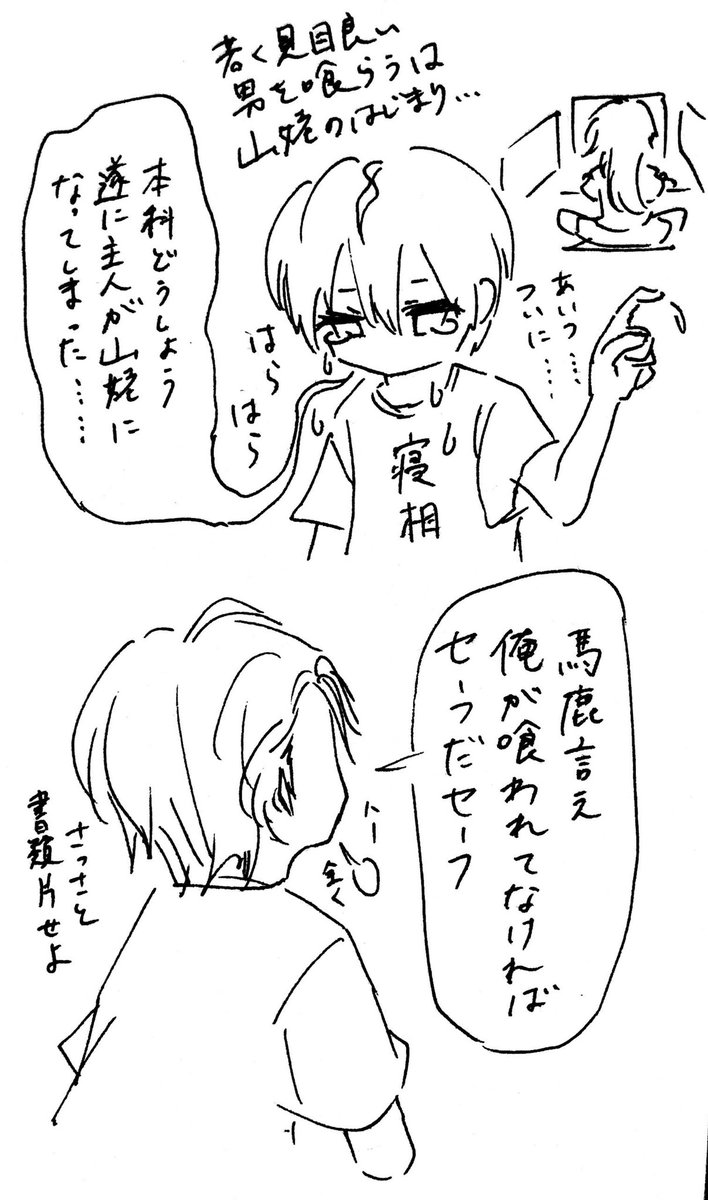 若く見目良い
男を喰らうは
山姥のはじまり…
あいつ……
ついに…
本科どうしよう
遂に主人が山姥に
なってしまった……
はら
はら
寝相
馬鹿言え
俺が喰われてなければ
セーフだセーフ
全く
さっさと
書類片せよ